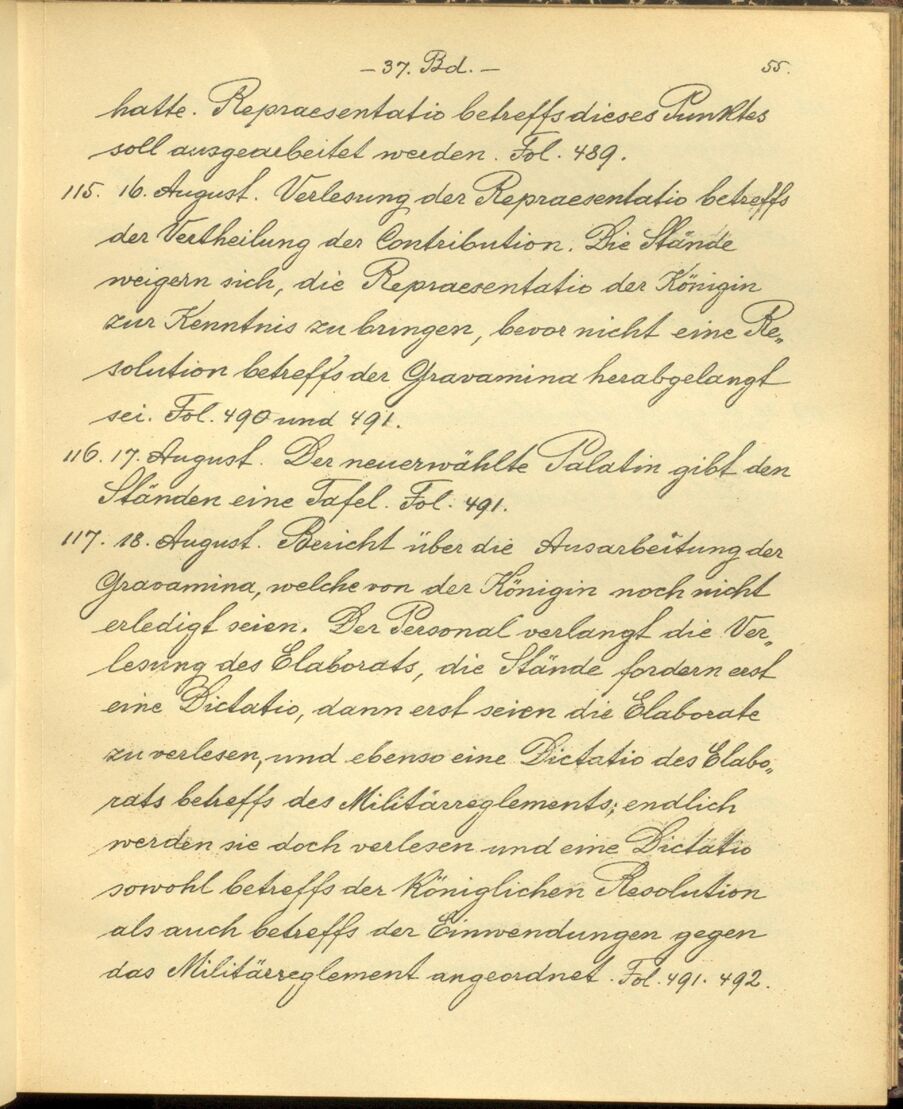 – 37. Bd. –
55.
hatte. Repraesentatio betreffs dieses Punktes
soll ausgearbeitet werden. Fol. 489.
115. 16. August. Verlesung der Repraesentatio betreffs
der Vertheilung der Contribution. Die Stände
weigern sich, die Repraesentatio der Königin
zur Kenntnis zu bringen, bevor nicht eine Re„
solution betreffs der Gravamina herabgelangt
sei. Fol. 490 und 491.
116. 17. August. Der neuerwählte Palatin gibt den
Ständen eine Tafel. Fol. 491.
117. 18. August. Bericht über die Ausarbeitung der
Gravamina, welche von der Königin noch nicht
erledigt seien. Der Personal verlangt die Ver„
lesung des Elaborats, die Stände fordern erst
eine Dictatio, dann erst seien die Elaborate
zu verlesen, und ebenso eine Dictatio des Elabo„
rats betreffs des Militärreglements; endlich
werden sie doch verlesen und eine Dictatio
sowohl betreffs der Königlichen Resolution
als auch betreffs der Einwendungen gegen
das Militärreglement angeordnet. Fol. 491. 492.